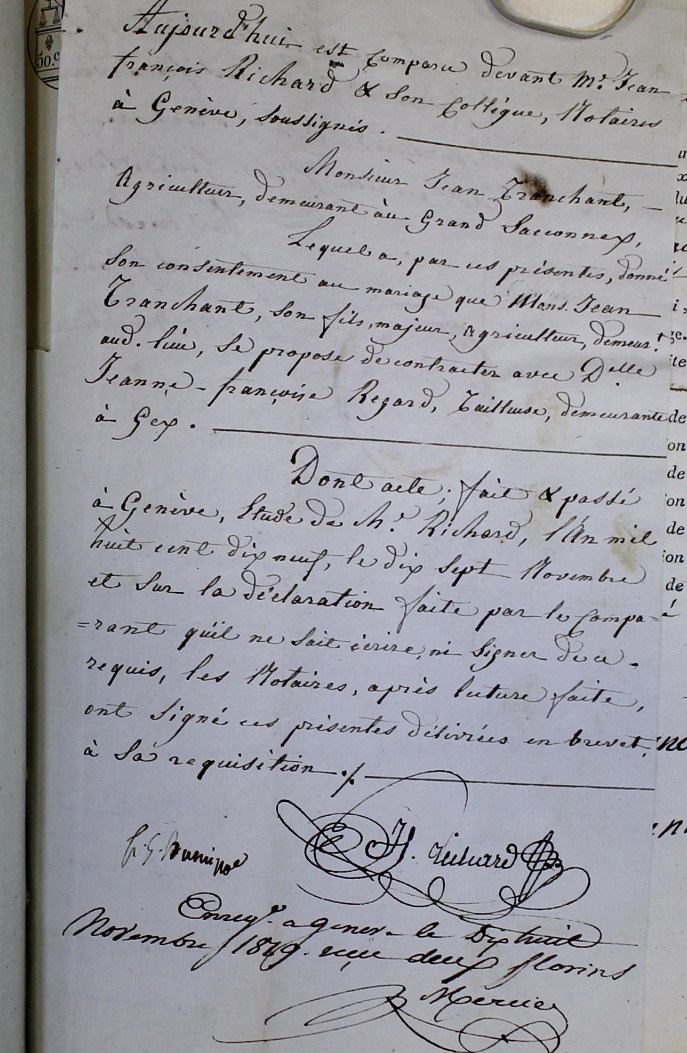 50. c
Aujourd'hui est comparu devant Me. Jean
françois Richard & son Collègue, Notaires
à Genève, soussignés.
Monsieur Jean Tranchant, -
Agriculteur, demeurant au Grand Saconnex,
Lequel a, par ces présentes, donné
son consentement au mariage que Mons. Jean
Tranchant, son fils, majeur, Agriculteur, demeurt.
aud. lieu, se propose de contracter avec Delle
Jeanne-françoise Regard, Tailleuse, demeurante
à Gex.
Dont acte; fait & passé
à Genève, Etude de Me. Richard, l'An mil
huit cent dix neuf, le dix sept Novembre
et sur la déclaration faite par le Compa=
=rant qu'il ne sait écrire, ni signer de ce -
requis, les Notaires, après lecture faite,
ont signé ces présentes délivrées en brevet,
à sa requisition ./.
J. f. Richard
Enregé. a Geneve le Dix huit
Novembre 1819. reçu deux florins
Mercier